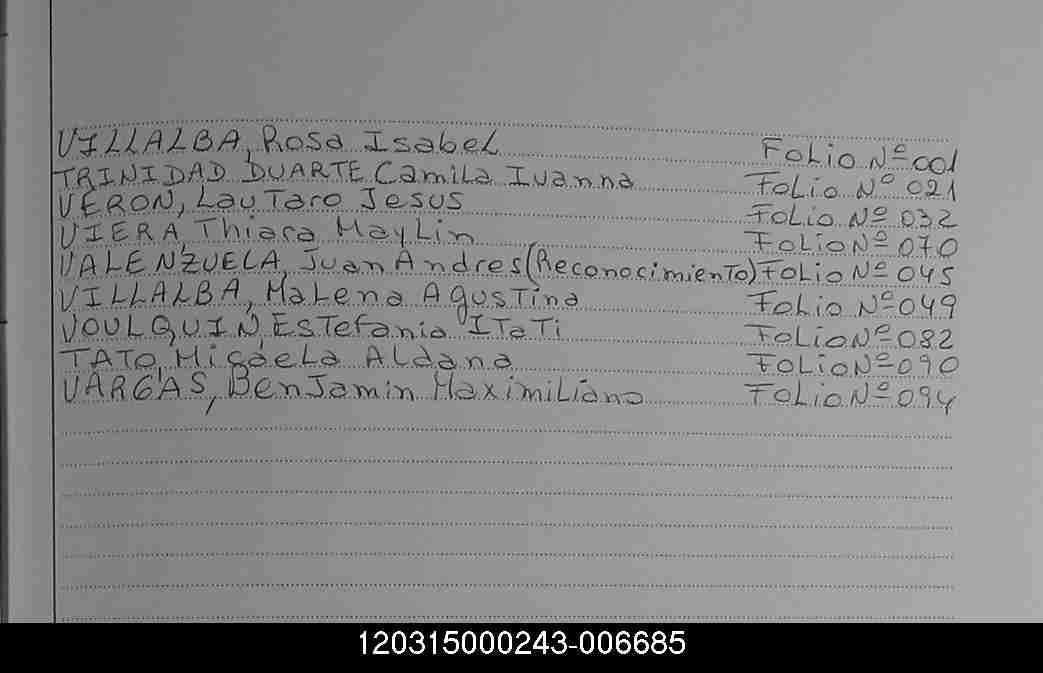 VILLALBA, Rosa Isabel Folio Nº 001
TRINIDAD DUARTE Camila Ivanna Folio Nº 021
VERON, Lautaro Jesus Folio Nº 032
VIERA, Thiara Maylin Folio Nº 070
VALENZUELA, Juan Andres (Reconocimiento) Folio Nº 045
VILLALBA, Malena Agustina Folio Nº 049
VOULQUIN, Estefania ITaTi Folio Nº 082
TATO, Micaela Aldana Folio Nº 090
VARGAS, Benjamin Maximiliano Folio Nº 094
120315000243-006685